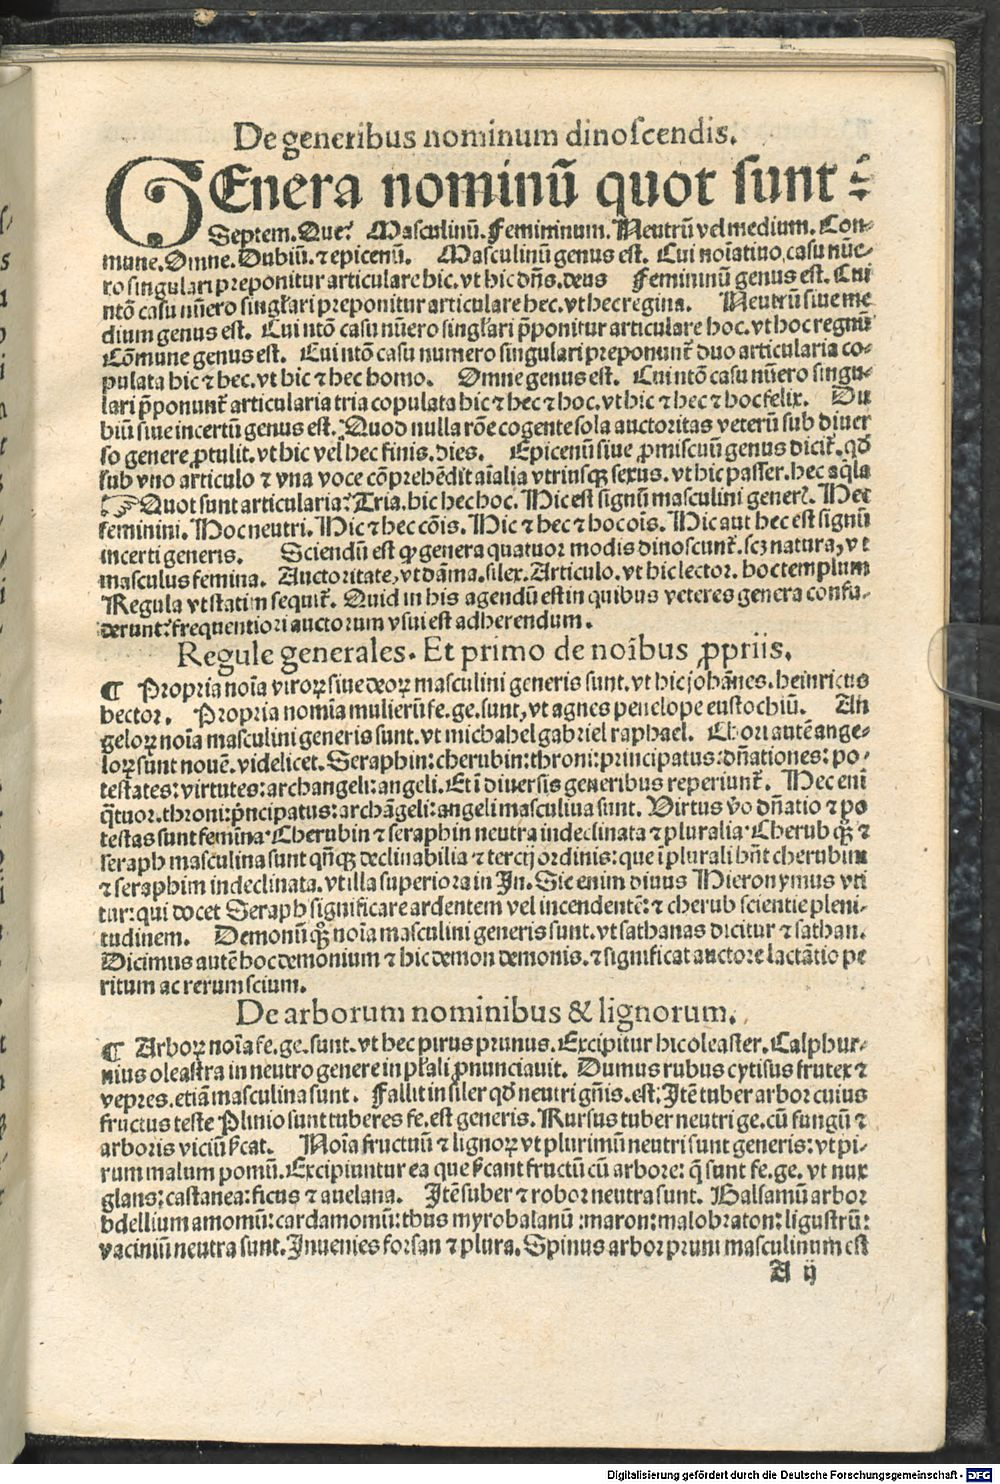 De generibus nominum dinoscendis.
GEnera nominū quot sunt:
Septem. Que? Masculinū. Femininum. Neutrū vel medium. Com-
mune. Omne. Dubiū. ⁊ epicenū. Masculinū genus est. Cui noīatiuo casu nūe-
ro singulari preponitur articulare hic. vt hic dn̄s. deus Femininū genus est. Cui
ntō casu nūero singl̓ari preponitur articulare hec. vt hec regina. Neutrū siue me
dium genus est. Cui ntō casu nūero singl̓ari p̄ponitur articulare hoc. vt hoc regnū
Cōmune genus est. Cui ntō casu numero singulari preponunt᷑ duo articularia co-
pulata hic ⁊ hec. vt hic ⁊ hec homo. Omne genus est. Cui ntō casu nūero singu-
lari p̄ponunt᷑ articularia tria copulata hic ⁊ hec ⁊ hoc. vt hic ⁊ hec ⁊ hoc felix. Du
biū siue incertū genus est. Quod nulla rōne cogente sola auctoritas veterū sub diuer
so genere ꝓtulit. vt hic vel hec finis. dies. Epicenū siue ꝓmiscuū genus dicit᷑. qd̓
sub vno articulo ⁊ vna voce cōprehēdit aīalia vtriusqꝫ sexus. vt hic passer. hec aq̄la
☞ Quot sunt articularia? Tria. hic hec hoc. Hic est signū masculini generꝭ. Hec
feminini. Hoc neutri. Hic ⁊ hec cōis. Hic ⁊ hec ⁊ hoc oīs. Hic aut hec est signū
incerti generis. Sciendū est ꝙ genera quatuor modis dinoscunt᷑. scꝫ natura, vt
masculus femina. Auctoritate, vt dāma. silex. Articulo. vt hic lector. hoc templum
Regula vt statim sequit᷑. Quid in his agendū est in quibus veteres genera confu-
derunt? frequentiori auctorum vsui est adherendum.
Regule generales. Et primo de noībus ꝓpriis.
¶ Propria noīa viroꝝ siue deoꝝ masculini generis sunt. vt hic johānes. heinricus
hector. Propria nomīa mulierū fe. ge. sunt, vt agnes penelope eustochiū. An
geloꝝ noīa masculini generis sunt. vt michahel gabriel raphael. Chori autē ange-
loꝝ sunt nouē. videlicet. Seraphin: cherubin: throni: principatus: dn̄ationes: po-
testates: virtutes: archangeli: angeli. Et ī diuersis generibus reperiunt᷑. Hec eni
q̄tuor. throni: p̄ncipatus: archāgeli: angeli masculina sunt. Virtus v̓o dn̄atio ⁊ po
testas sunt femīna. Cherubin ⁊ seraphin neutra indeclinata ⁊ pluralia. Cherub qꝫ ⁊
seraph masculina sunt qn̄qꝫ declinabilia ⁊ tercij ordinis: que ī plurali hn̄t cherubim
⁊ seraphim indeclinata. vt illa superiora in Jn. Sic enim diuus Hieronymus vti
tur: qui docet Seraph significare ardentem vel incendentē: ⁊ cherub scientie pleni-
tudinem. Demonū qꝫ noīa masculini generis sunt. vt sathanas dicitur ⁊ sathan.
Dicimus autē hoc demonium ⁊ hic demon demonis. ⁊ significat auctore lactātio pe
ritum ac rerum scium.
De arborum nominibus & lignorum.
¶ Arboꝝ noīa fe. ge. sunt. vt hec pirus prunus. Excipitur hic oleaster. Calphur-
nius oleastra in neutro genere in pl̓ali ꝓnunciauit. Dumus rubus cytisus frutex ⁊
vepres. etiā masculina sunt. Fallit in siler qd̓ neutri gn̄is. est; Itē tuber arbor cuius
fructus teste Plinio sunt tuberes fe. est generis. Rursus tuber neutri ge. cū fungū ⁊
arboris viciū s̓cat. Noīa fructuū ⁊ lignoꝝ vt plurimū neutri sunt generis: vt pi-
rum malum pomū. Excipiuntur ea que s̓cant fructū cū arbore: q̄ sunt fe. ge. vt nux
glans: castanea: ficus ⁊ auelana. Itē suber ⁊ robor neutra sunt. Balsamū arbor
bdellium amomū: cardamomū: thus myrobalanū: maron: malobraton: ligustrū:
vaciniū neutra sunt. Inuenies forsan ⁊ plura. Spinus arbor pruni masculinum est
A ij
Digitalisierung gefördert durch die Deutsche Forschungsgemeinschaft - DFG